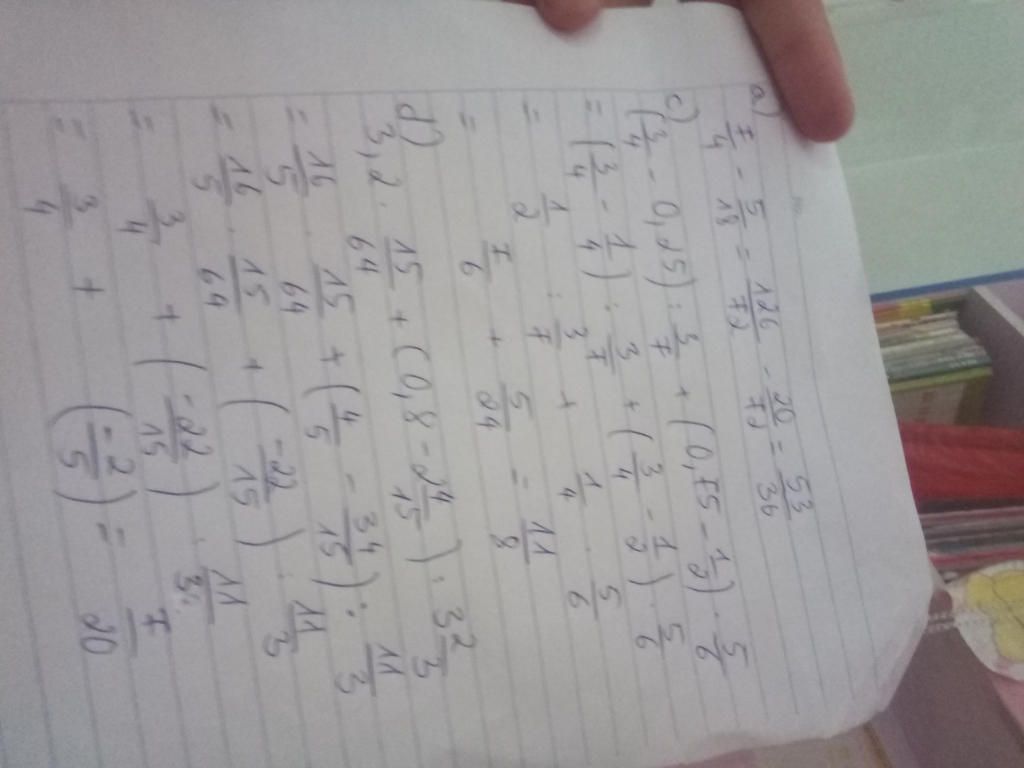 a)
7/4 - 5/18 = 126/72 - 20/72 = 53/36
c)
(3/4 - 0,25) : 3/7 + (0,75 - 1/2) . 5/6
= (3/4 - 1/4) : 3/7 + (3/4 - 1/2) . 5/6
= 1/2 : 3/7 + 1/4 . 5/6
= 7/6 + 5/24 = 11/8
d)
3,2 . 15/64 + (0,8 - 2 4/15) : 3 2/3
= 16/5 . 15/64 + (4/5 - 34/15) : 11/3
= 16/5 . 15/64 + (-22/15) : 11/3
= 3/4 + (-22/15) : 11/3
= 3/4 + (-2/5) = 7/20